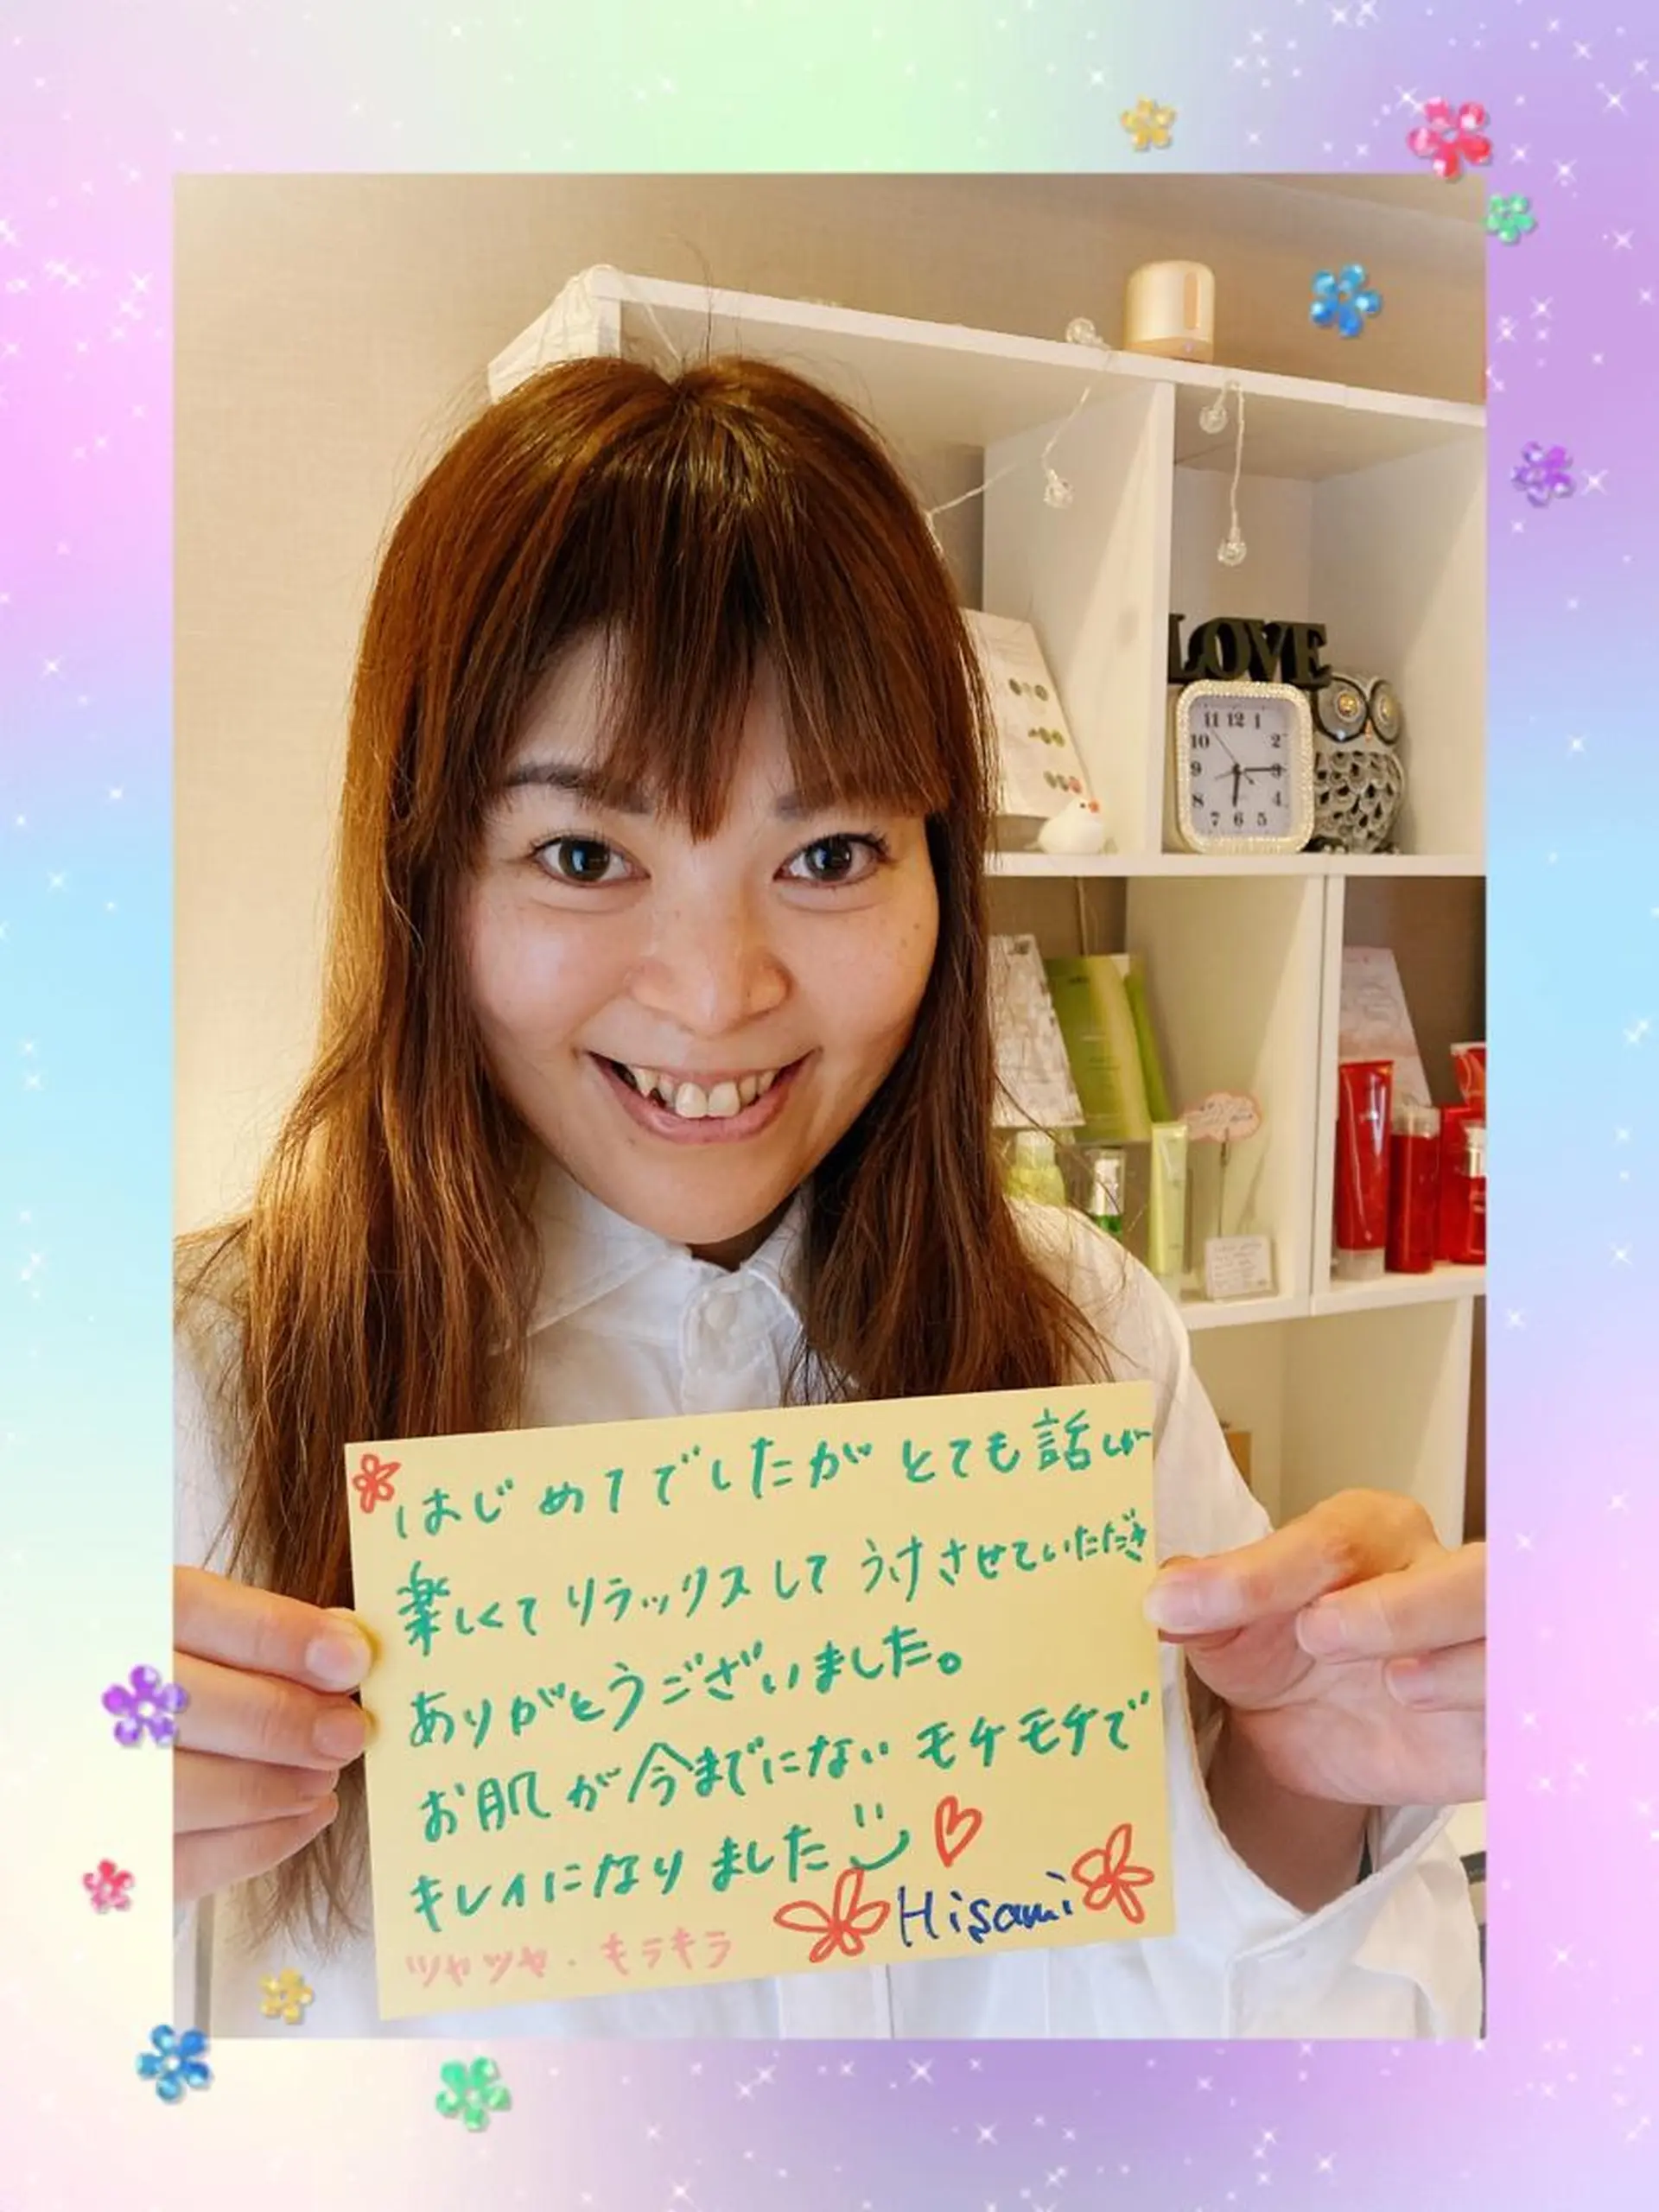 LOVE
11 12 1
10 2
9 3
8 4
7 6 5
はじめてでしたが とても話しが
楽しくて リラックスして うけさせていただき
ありがとうございました。
お肌が今までにない モチモチで
キレイになりました
Hisami
ツヤツヤ・キラキラ